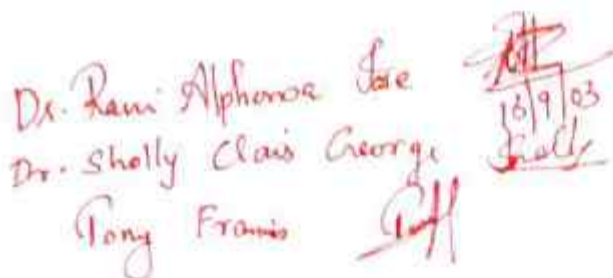 Dr. Rani Alphonsa Jose
16/9/03
Dr. Sholly Clair George Sholly
Tony Francis